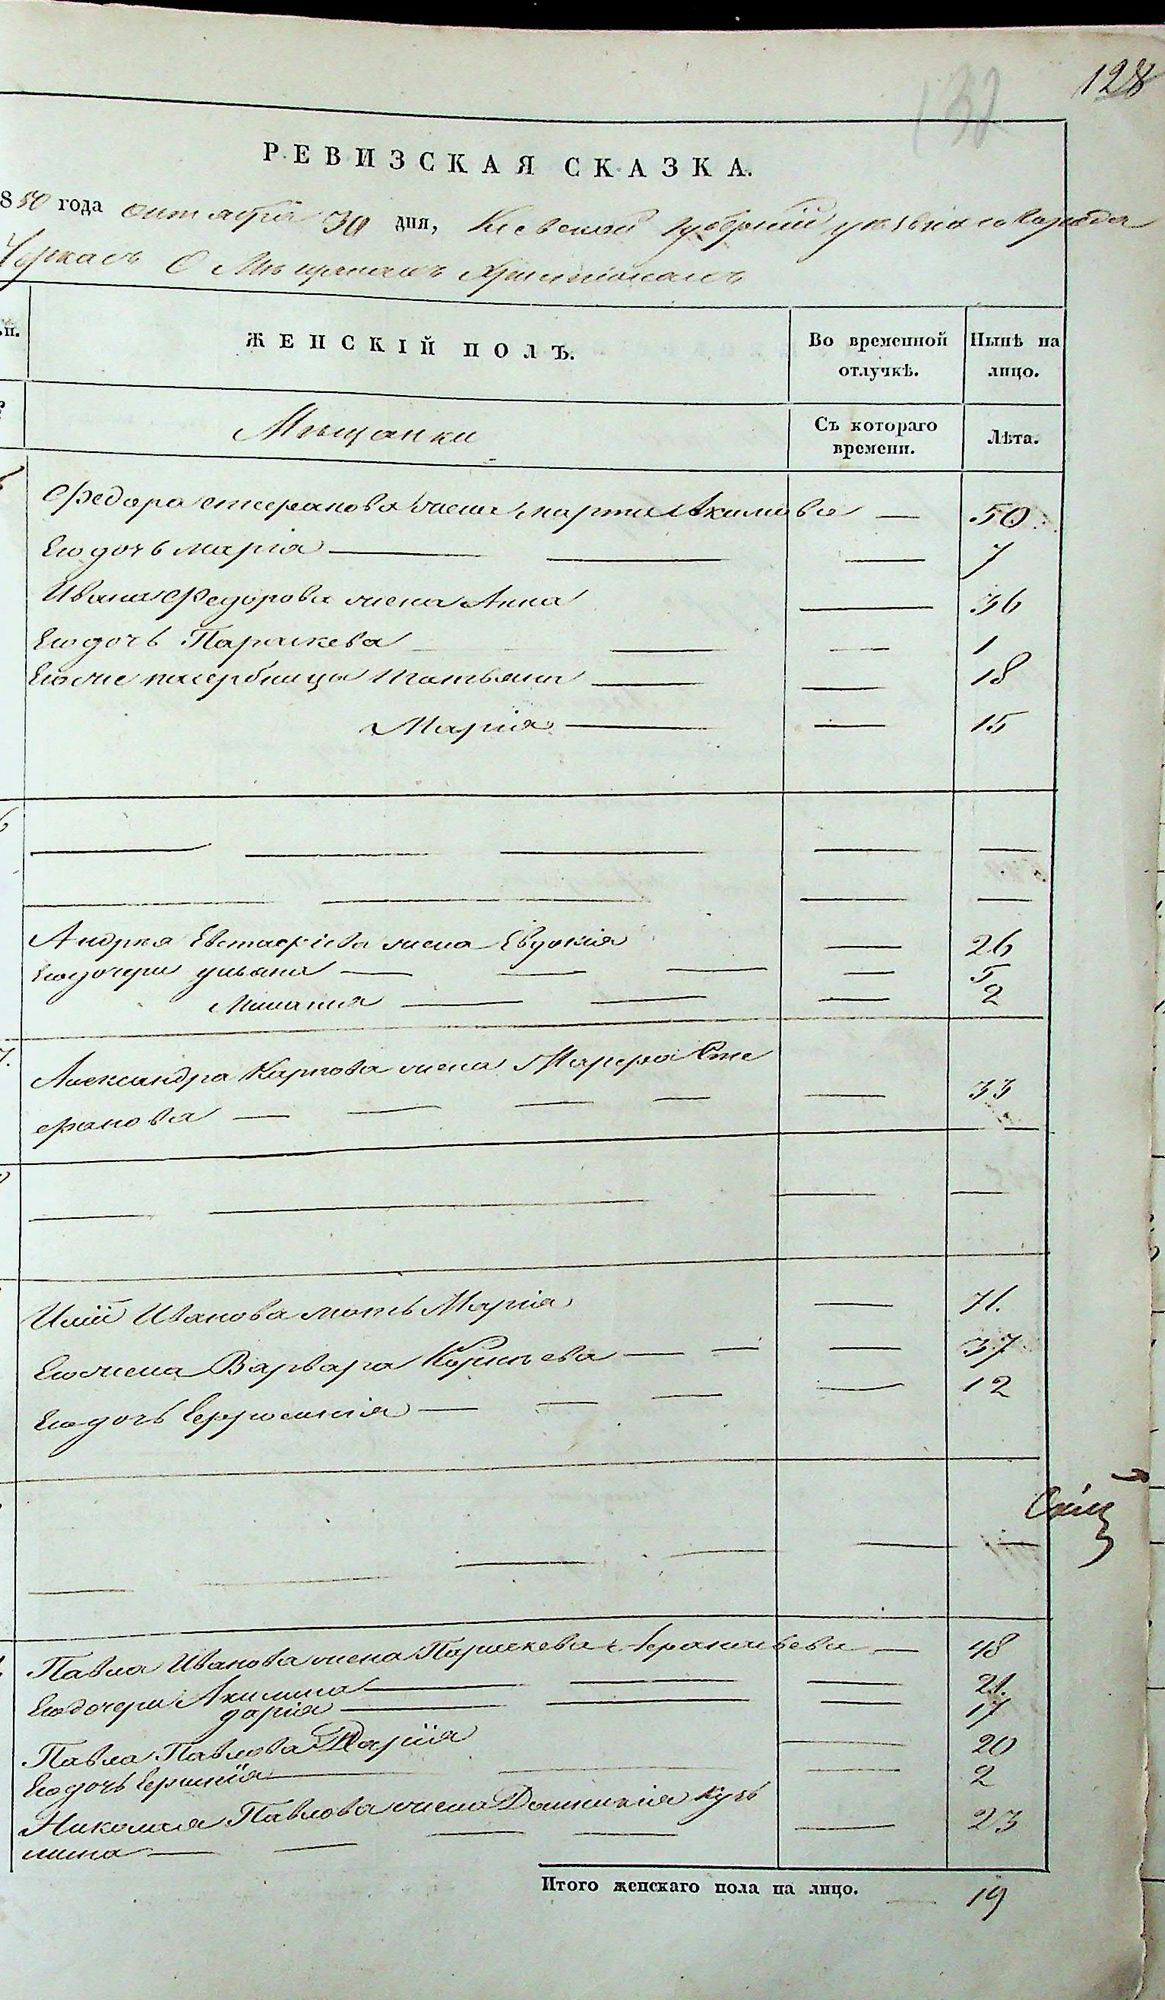 128
132
РЕВИЗСКАЯ СКАЗКА.
850 года октября 30 дня, Киевской Губернии уезднаго города
Черкасъ О Мещанахъ Христіанахъ
ЖЕНСКІЙ ПОЛЪ.
Во временной отлучкѣ.
Нынѣ на лицо.
Мѣщанки
Съ котораго времени.
Лѣта.
Федора Стефанова жена Марта Акимова — 50
Его дочь Марія — 7
Ивана Федорова жена Анна — 36
Его дочь Параскева — 1
Его же пасербницы Татьяна — 18
Марія — 15
6
Андрея Евстафіева жена Евдокія — 26
Его дочери Ульяна — 5
Меланія — 2
7.
Александра Карпова жена Марфа Сте
фанова — 33
Иліи Иванова мать Марія — 71.
Его жена Варвара Корнѣева — 37
Его дочь Ефросинія — 12
Павла Иванова жена Параскева — 48
Его дочери Акилина — 21.
Дарія — 17
Павла Павлова Дарія — 20
Его дочь — 2
Николая Павлова жена Домникія Кузь
мина — 23
Итого женскаго пола на лицо. — 19